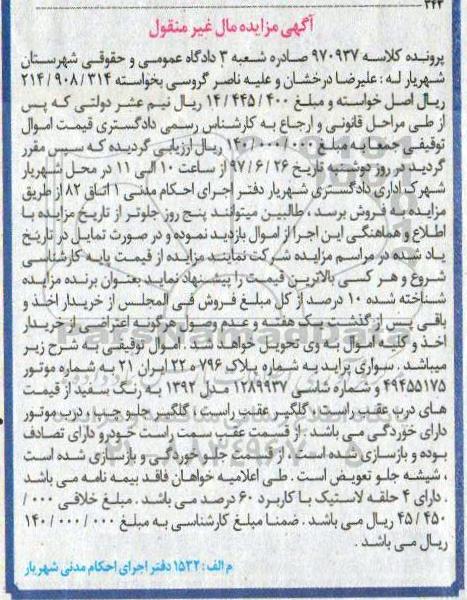 ۳۴۳
آگهی مزایده مال غیر منقول
پرونده کلاسه ۹۷۰۹۳۷ صادره شعبه ۳ دادگاه عمومی و حقوقی شهرستان
شهریار له : علیرضا درخشان و علیه ناصر گروسی بخواسته ۲۱۴/۹۰۸/۳۱۴
ریال اصل خواسته و مبلغ ۱۴/۴۴۵/۴۰۰ ریال نیم عشر دولتی که پس
از طی مراحل قانونی و ارجاع به کارشناس رسمی دادگستری قیمت اموال
توقیفی جمعا به مبلغ ۱۴۰/۰۰۰/۰۰۰ ریال ارزیابی گردیده که سپس مقرر
گردید در روز دوشنبه تاریخ ۹۷/۶/۲۶ از ساعت ۱۰ الی ۱۱ در محل شهریار
شهرک اداری دادگستری شهریار دفتر اجرای احکام مدنی ۱ اتاق ۸۲ از طریق
مزایده به فروش برسد ، طالبین میتوانند پنج روز جلوتر از تاریخ مزایده با
اطلاع و هماهنگی این اجرا از اموال بازدید نموده و در صورت تمایل در تاریخ
یاد شده در مراسم مزایده شرکت نمایند مزایده از قیمت پایه کارشناسی
شروع و هر کسی بالاترین قیمت را پیشنهاد نماید بعنوان برنده مزایده
شناخته شده ۱۰ درصد از کل مبلغ فروش فی المجلس از خریدار اخذ و
باقی پس از گذشت یک هفته و عدم وصول هرگونه اعتراضی از خریدار
اخذ و کلیه اموال به وی تحویل خواهد شد . اموال توقیفی به شرح زیر
میباشد . سواری پراید به شماره پلاک ۷۹۶ ه ۲۲ ایران ۲۱ به شماره موتور
۴۹۴۵۵۱۷۵ و شماره شاسی ۱۲۸۹۹۳۷ مدل ۱۳۹۲ به رنگ سفید از قیمت
های درب عقب راست ، گلگیر عقب راست ، گلگیر جلو چپ ، درب موتور
دارای خوردگی می باشد . از قسمت عقب سمت راست خودرو دارای تصادف
بوده و بازسازی شده است ، از قسمت جلو خوردگی و بازسازی شده است
، شیشه جلو تعویض است . طی اعلامیه خواهان فاقد بیمه نامه می باشد
. دارای ۴ حلقه لاستیک با کاربرد ۶۰ درصد می باشد . مبلغ خلافی ۰۰۰/
۴۵/۴۵۰ ریال می باشد . ضمنا مبلغ کارشناسی به مبلغ ۱۴۰/۰۰۰/۰۰۰
ریال می باشد .
م الف : ۱۵۳۲ دفتر اجرای احکام مدنی شهریار